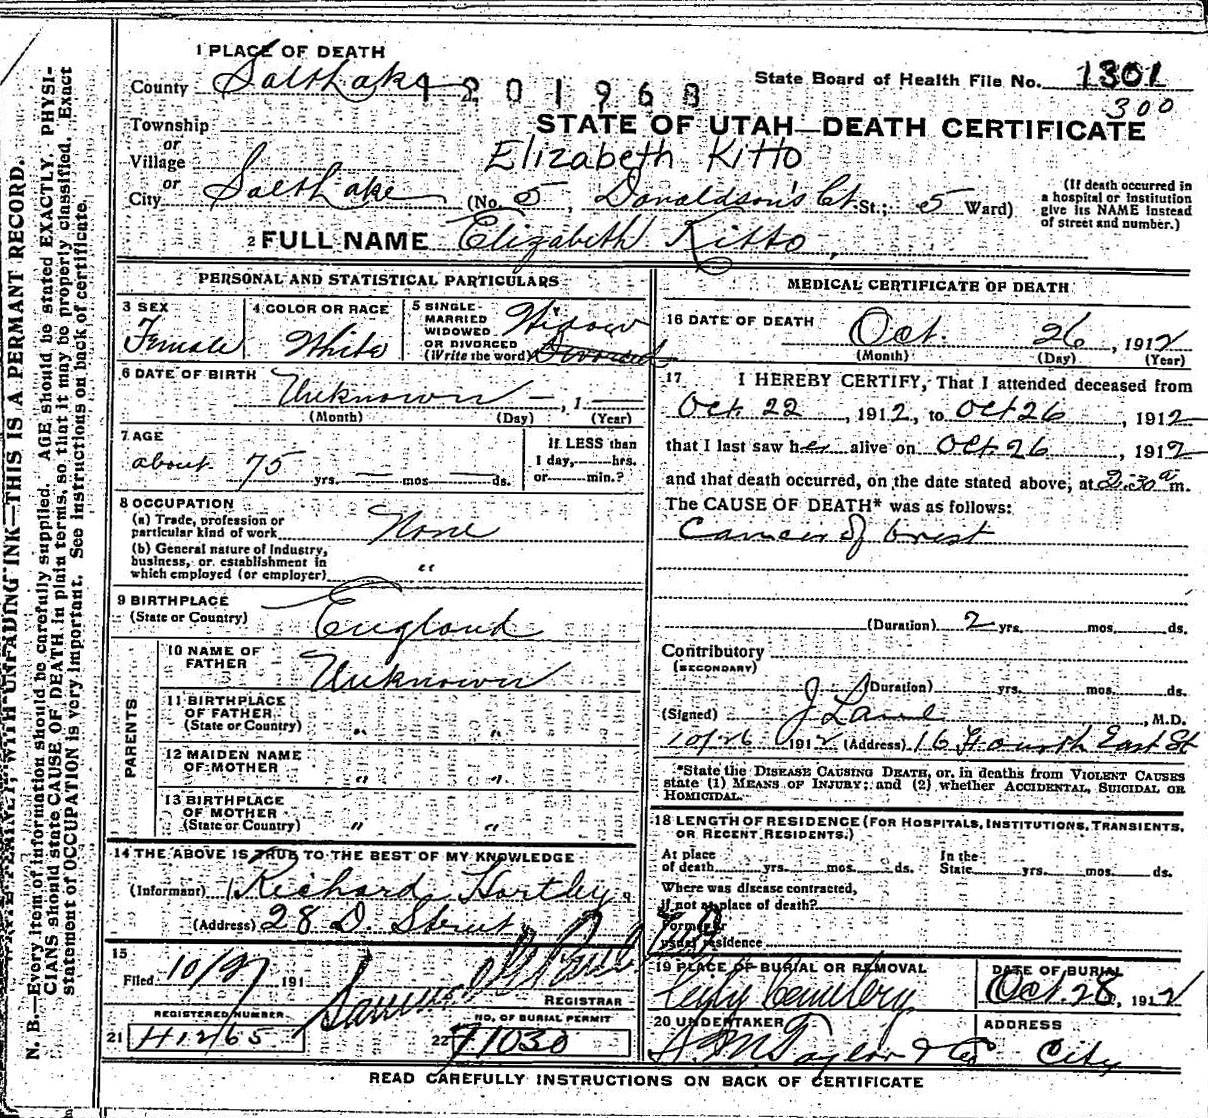 1 PLACE OF DEATH
County Salt Lake
4201968
State Board of Health File No. 1301
300
STATE OF UTAH—DEATH CERTIFICATE
Township
or
Village
Elizabeth Kitto
or
City Salt Lake (No. 5, Donaldson's Ct. St.; 5 Ward)
(If death occurred in
a hospital or institution
give its NAME instead
of street and number.)
2 FULL NAME Elizabeth Kitto
PERSONAL AND STATISTICAL PARTICULARS
3 SEX
Female
4 COLOR OR RACE
White
5 SINGLE
MARRIED
WIDOWED
OR DIVORCED
(Write the word)
Widow
Divorced
6 DATE OF BIRTH
Unknown — , 1
(Month) (Day) (Year)
7 AGE
about 75 yrs. — mos — ds.
If LESS than
1 day, hrs.
or min.?
8 OCCUPATION
(a) Trade, profession or
particular kind of work None
(b) General nature of Industry,
business, or establishment in
which employed (or employer) "
9 BIRTHPLACE
(State or Country) England
PARENTS
10 NAME OF
FATHER Unknown
11 BIRTHPLACE
OF FATHER
(State or Country) " "
12 MAIDEN NAME
OF MOTHER " "
13 BIRTHPLACE
OF MOTHER
(State or Country) " "
14 THE ABOVE IS TRUE TO THE BEST OF MY KNOWLEDGE
(Informant) Richard Hortley
(Address) 28 D. Street
15
Filed 10/27 191
REGISTRAR
REGISTERED NUMBER
21 H1265
NO. OF BURIAL PERMIT
22 71030
MEDICAL CERTIFICATE OF DEATH
16 DATE OF DEATH
Oct. 26, 1912
(Month) (Day) (Year)
17 I HEREBY CERTIFY, That I attended deceased from
Oct. 22, 1912, to Oct 26, 1912
that I last saw her alive on Oct. 26, 1912
and that death occurred, on the date stated above, at 2:30 a m.
The CAUSE OF DEATH* was as follows:
Cancer of brest
(Duration) 2 yrs. mos. ds.
Contributory
(SECONDARY)
(Duration) yrs. mos. ds.
(Signed) J Lane, M.D.
10/26 1912 (Address) 16 Fourth East St
*State the DISEASE CAUSING DEATH, or, in deaths from VIOLENT CAUSES
state (1) MEANS OF INJURY; and (2) whether ACCIDENTAL, SUICIDAL OR
HOMICIDAL.
18 LENGTH OF RESIDENCE (FOR HOSPITALS, INSTITUTIONS, TRANSIENTS,
OR RECENT RESIDENTS.)
At place
of death yrs. mos. ds.
In the
State yrs. mos. ds.
Where was disease contracted,
if not at place of death?
Former or
usual residence
19 PLACE OF BURIAL OR REMOVAL
City Cemetery
DATE OF BURIAL
Oct. 28, 1912
20 UNDERTAKER
S. M. Taylor & Co
ADDRESS
City
READ CAREFULLY INSTRUCTIONS ON BACK OF CERTIFICATE
WITH UNFADING INK—THIS IS A PERMANT RECORD.
N. B.—Every item of information should be carefully supplied. AGE should be stated EXACTLY. PHYSI-
CIANS should state CAUSE OF DEATH in plain terms, so that it may be properly classified. Exact
statement of OCCUPATION is very important. See instructions on back of certificate.